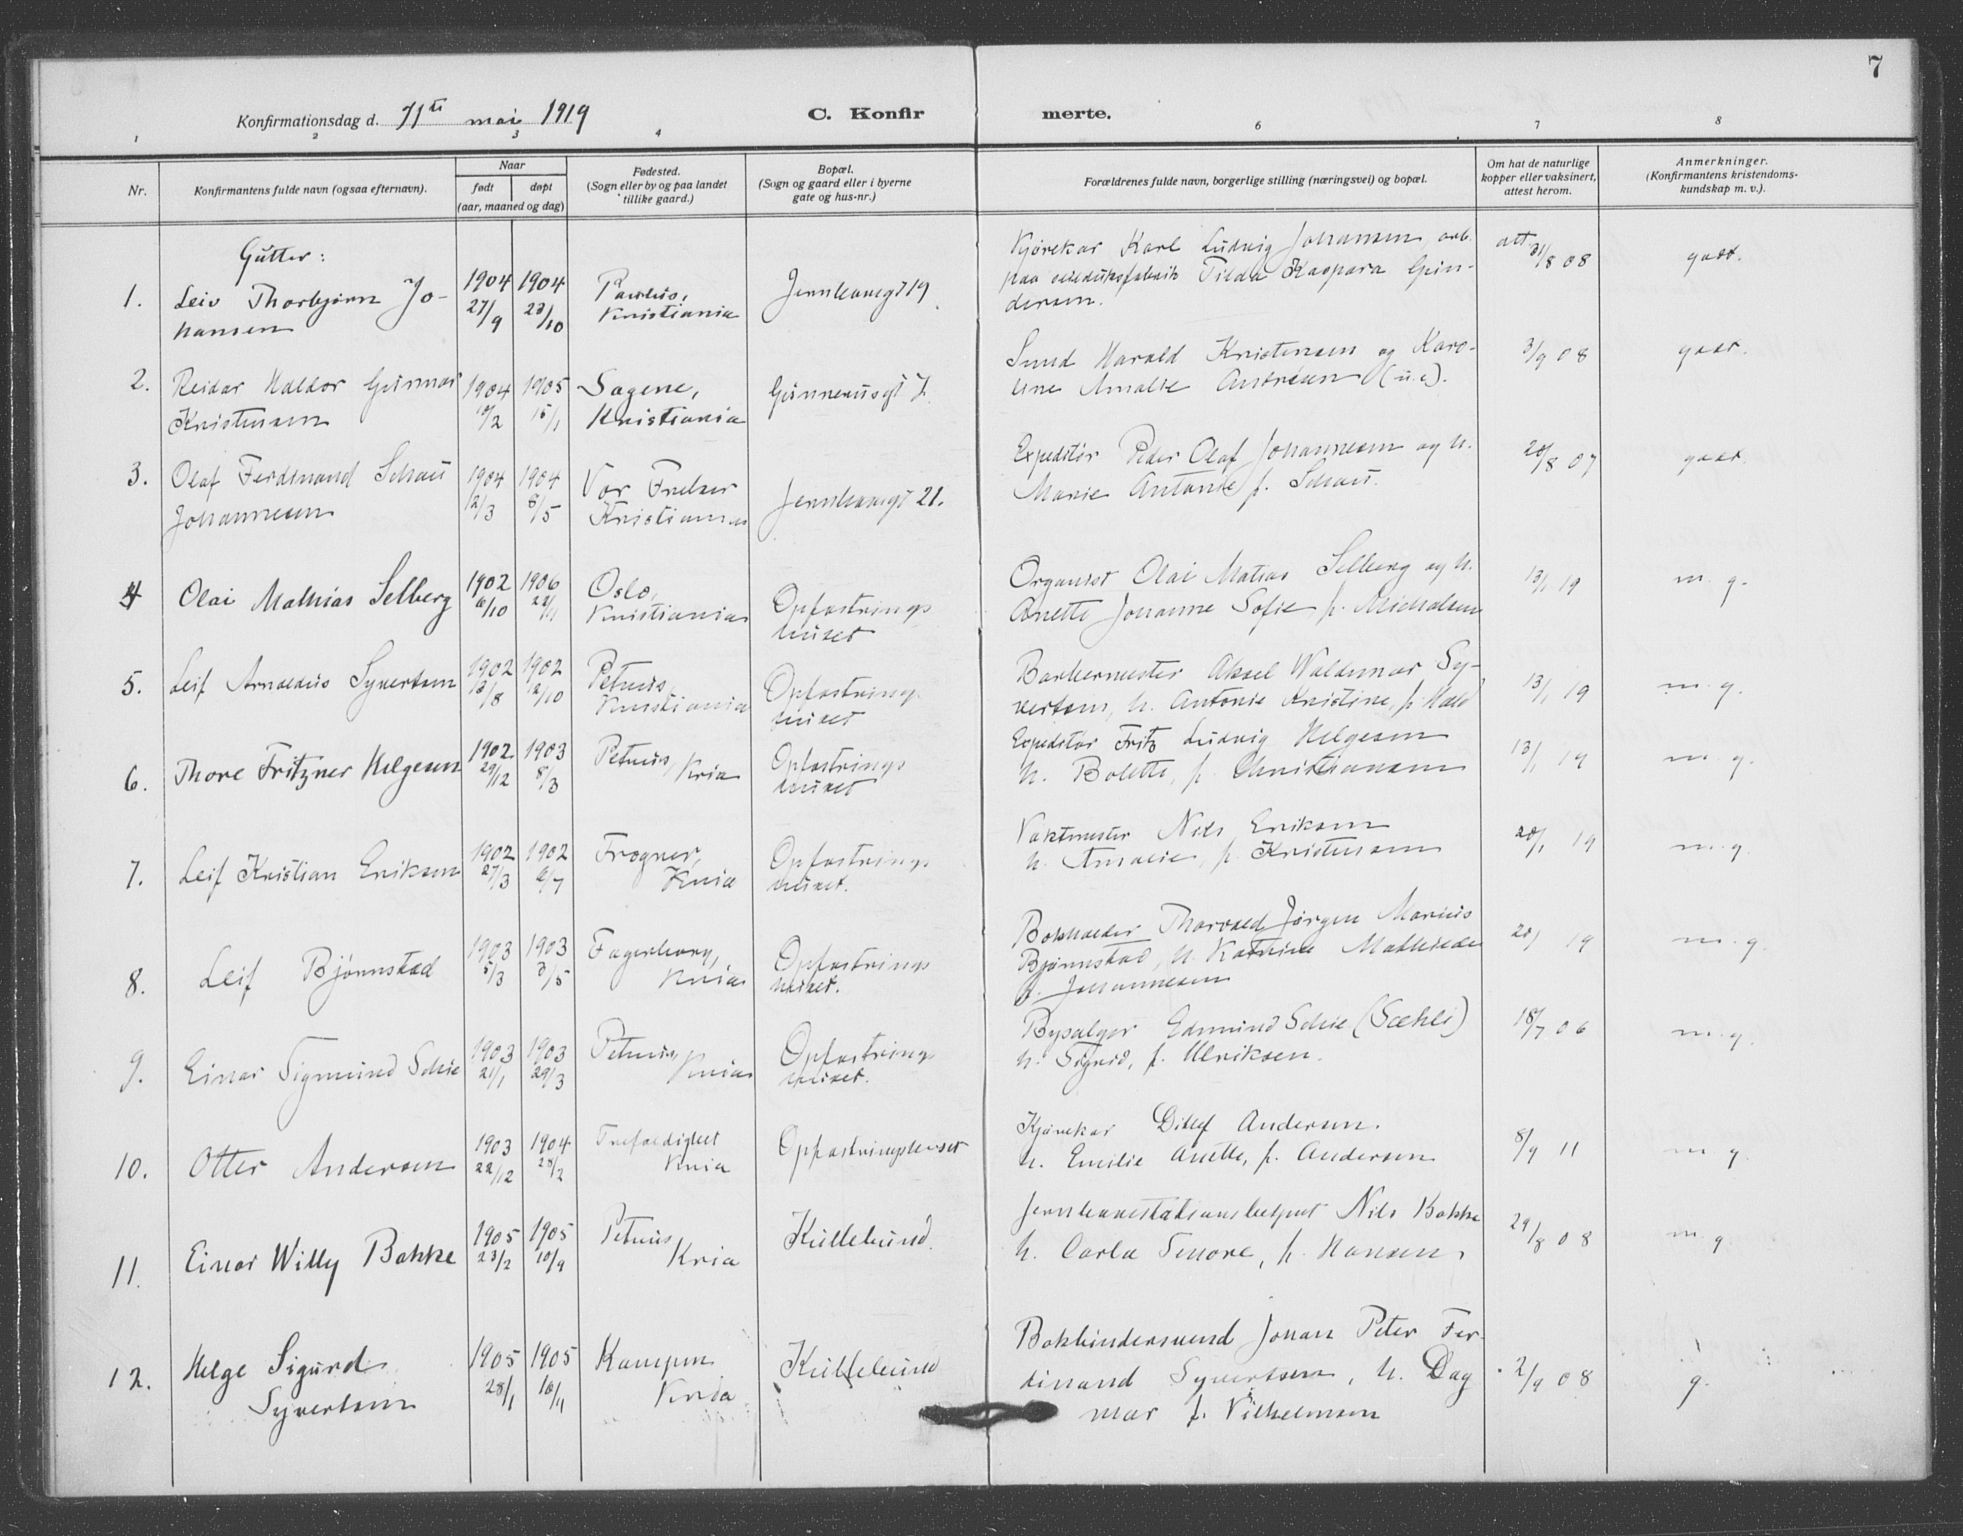 7
Konfirmationsdag d. 11te mai 1919 C. Konfir merte.
1 2 3 4 6 7 8
Nr. Konfirmantens fulde navn (ogsaa efternavn). Naar født døpt (aar, maaned og dag) Fødested. (Sogn eller by og paa landet tillike gaard.) Bopæl. (Sogn og gaard eller i byerne gate og hus-nr.) Forældrenes fulde navn, borgerlige stilling (næringsvei) og bopæl. Om hat de naturlige kopper eller vaksinert, attest herom. Anmerkninger. (Konfirmantens kristendoms- kundskap m. v.).
Gutter:
1. Leiv Thorbjørn Jo-
hansen
1904 27/9
1904 23/10
Paulus,
Kristiania
Jernbanegt 19
Kjørekar Karl Ludvig Johansen, arb.
paa Tilda Kaspara Gun-
dersen.
att. 31/8 08
godt.
2. Reidar Haldor Gunnar
Kristensen
1904 10/2
1905 15/1
Sagene,
Kristiania
Gunnerusgt 7.
Smed Harald Kristensen og Karo-
line Amalie Andresen (u.e).
3/9 08
godt.
3. Olaf Ferdinand Schau
Johannesen
1904 12/3
1904 8/5
Vor Frelser
Kristiania
Jernbanegt 21.
Expeditør Peder Olaf Johannesen og h.
Marie Antonie f. Schau.
20/8 07
godt
4 Olai Mathias Selberg
1902 6/10
1906
Oslo,
Kristiania
Opfostrings
huset
Organist Olai Matias Selberg og h.
Anette Johanne Sofie f. Michalsen
13/1 19
m. g.
5. Leif Arnoldus Syvertsen
1902 13/8
1902 12/10
Petrus,
Kristiania
Opfostrings
huset
Barbermester Aksel Waldemar Sy-
vertsen, h. Antonie Kristine, f. Hald
13/1 19
m. g.
6. Thore Fritzner Helgesen
1902 29/12
1903 8/3
Petrus, Kria
Opfostrings
huset
Expeditør Fritz Ludvig Helgesen
h. Bolette, f. Christiansen
13/1 19
m. g.
7. Leif Kristian Eriksen
1902 27/3
1902 6/7
Frogner,
Kria
Opfostrings
huset.
Vaktmester Nils Eriksen
h. Amalie, f. Kristensen
20/1 19
m. g.
8. Leif Bjørnstad
1903 5/3
1903 3/5
Fagerborg,
Kria
Opfostrings
huset.
Bokholder Thorvald Jørgen Marius
Bjørnstad, h. Katrine Mathilde
f. Johannesen
20/ 19
m. g.
9. Einar Sigmund Schie
1903 21/1
1903 29/3
Petrus,
Kria
Opfostrings
huset.
Bysælger Edmund Schie (Sæhli)
h. Sigrid, f. Ulriksen.
18/7 06
m. g.
10. Otter Andersen
1903 22/12
1904 28/2
Trefoldighet
Kria
Opfostringshuset
Kjørekar Ditlef Andersen.
h. Emilie Anette, f. Andersen
8/9 11
m. g.
11. Einar Willy Bakke
1905 23/2
1905 10/9
Petrus
Kria
Kullebund.
Jernbanestationsbetjent Nils Bakke
h. Carla Tenore, f. Hansen.
29/8 08
m. g.
12. Helge Sigurd
Syvertsen
1905 28/1
1905
Kampen
Kria
Kullebund
Bokbindersvend Johan Peter Fer-
dinand Syvertsen, h. Dag
mar f. Vilhelmsen
2/9 08
g.